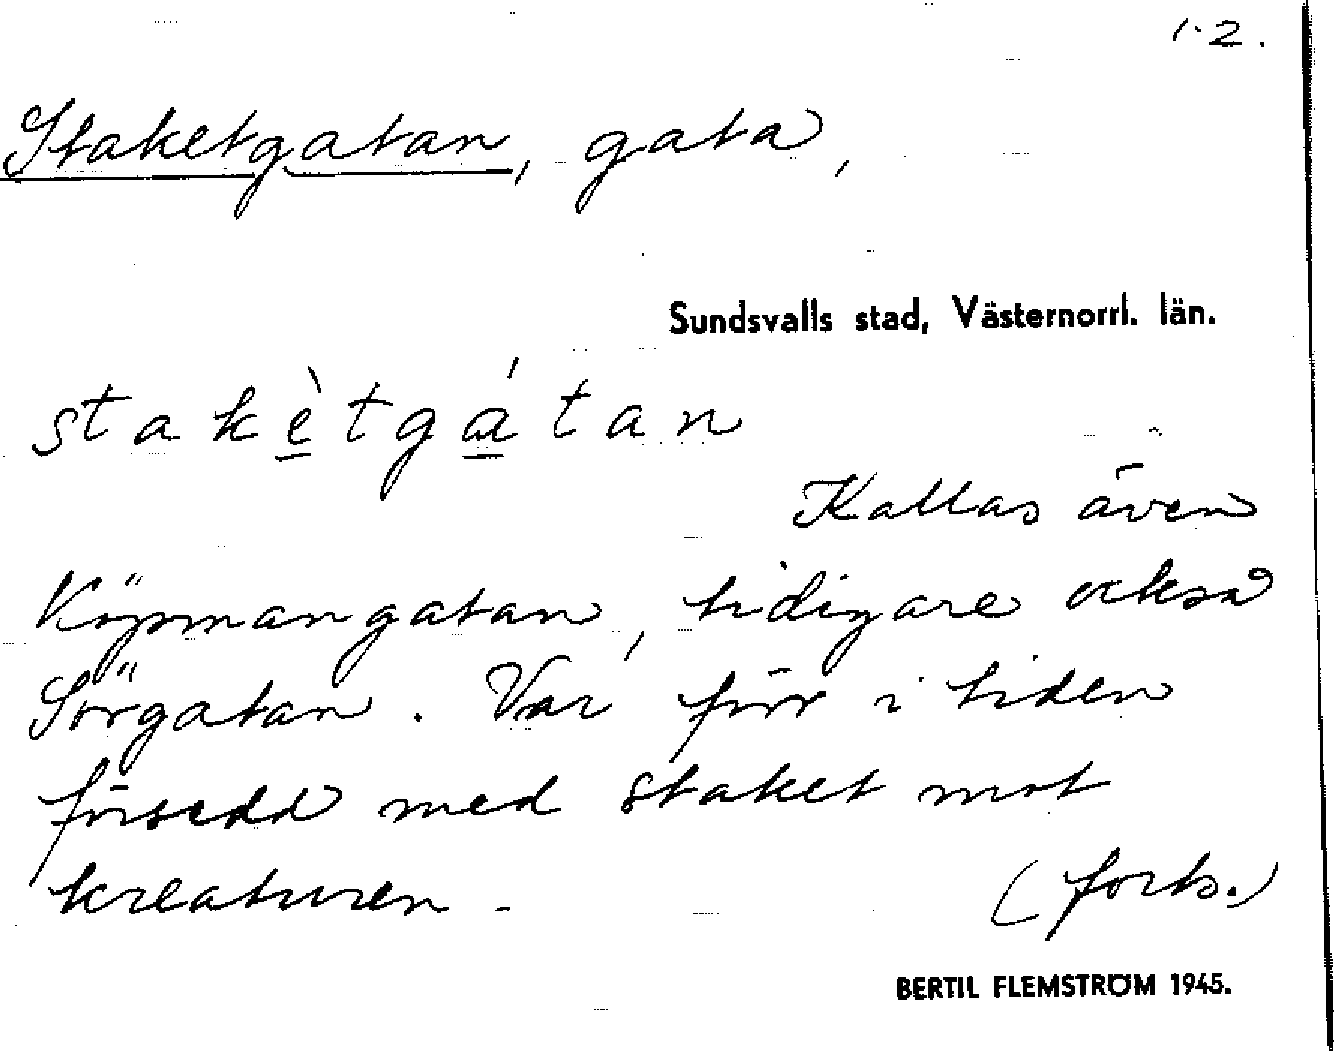 1-2.
Staketgatan, gata,
Sundsvalls stad, Västernorrl. län.
stakètgátan
Kallas även
Köpmangatan, tidigare också
Sörgatan. Var förr i tiden
försedd med staket mot
kreaturen -
(forts.)
BERTIL FLEMSTRÖM 1945.